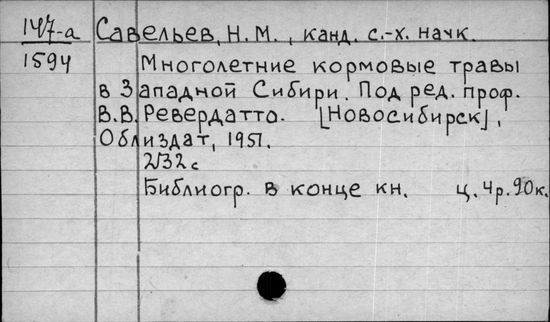 147-а Савельев, Н.М., канд. с.-х. наук.
1594
Многолетние кормовые травы
в Западной Сибири. Под ред. проф.
В.В. Ревердатто. [Новосибирск],
Облиздат, 1951.
232 с
Библиогр. в конце кн. ц. 4р. 90к.